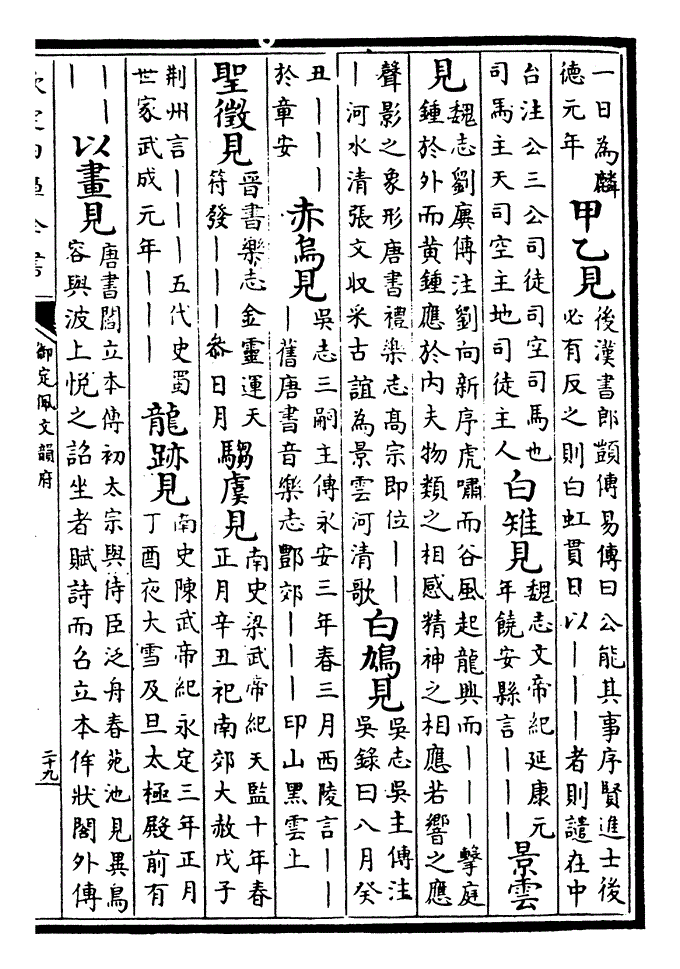 一日為麟
德元年
甲乙見
後漢書郎顗傳易傳曰公能其事序賢進士後
必有反之則白虹貫日以丨丨丨者則譴在中
台注公三公司徒司空司馬也
司馬主天司空主地司徒主人
白雉見
魏志文帝紀延康元
年饒安縣言丨丨丨
景雲
見
魏志劉廙傳注劉向新序虎嘯而谷風起龍興而丨丨丨擊庭
鍾於外而黃鍾應於內夫物類之相感精神之相應若響之應
聲影之象形唐書禮樂志高宗即位丨丨
丨河水清張文收采古誼為景雲河清歌
白鳩見
吳志吳主傳注
吳錄曰八月癸
丑丨丨丨
於章安
赤烏見
吳志三嗣主傳永安三年春三月西陵言丨丨
丨舊唐書音樂志酆郊丨丨丨印山黑雲上
聖徵見
晉書樂志金靈運天
符發丨丨丨叅日月
騶虞見
南史梁武帝紀天監十年春
正月辛丑祀南郊大赦戊子
荆州言丨丨丨五代史蜀
世家武成元年丨丨丨
龍跡見
南史陳武帝紀永定三年正月
丁酉夜大雪及旦太極殿前有
丨丨
丨
以畫見
唐書閻立本傳初太宗與侍臣泛舟春苑池見異鳥
容與波上悅之詔坐者賦詩而召立本侔狀閣外傳
欽定四庫全書
御定佩文韻府
二十九